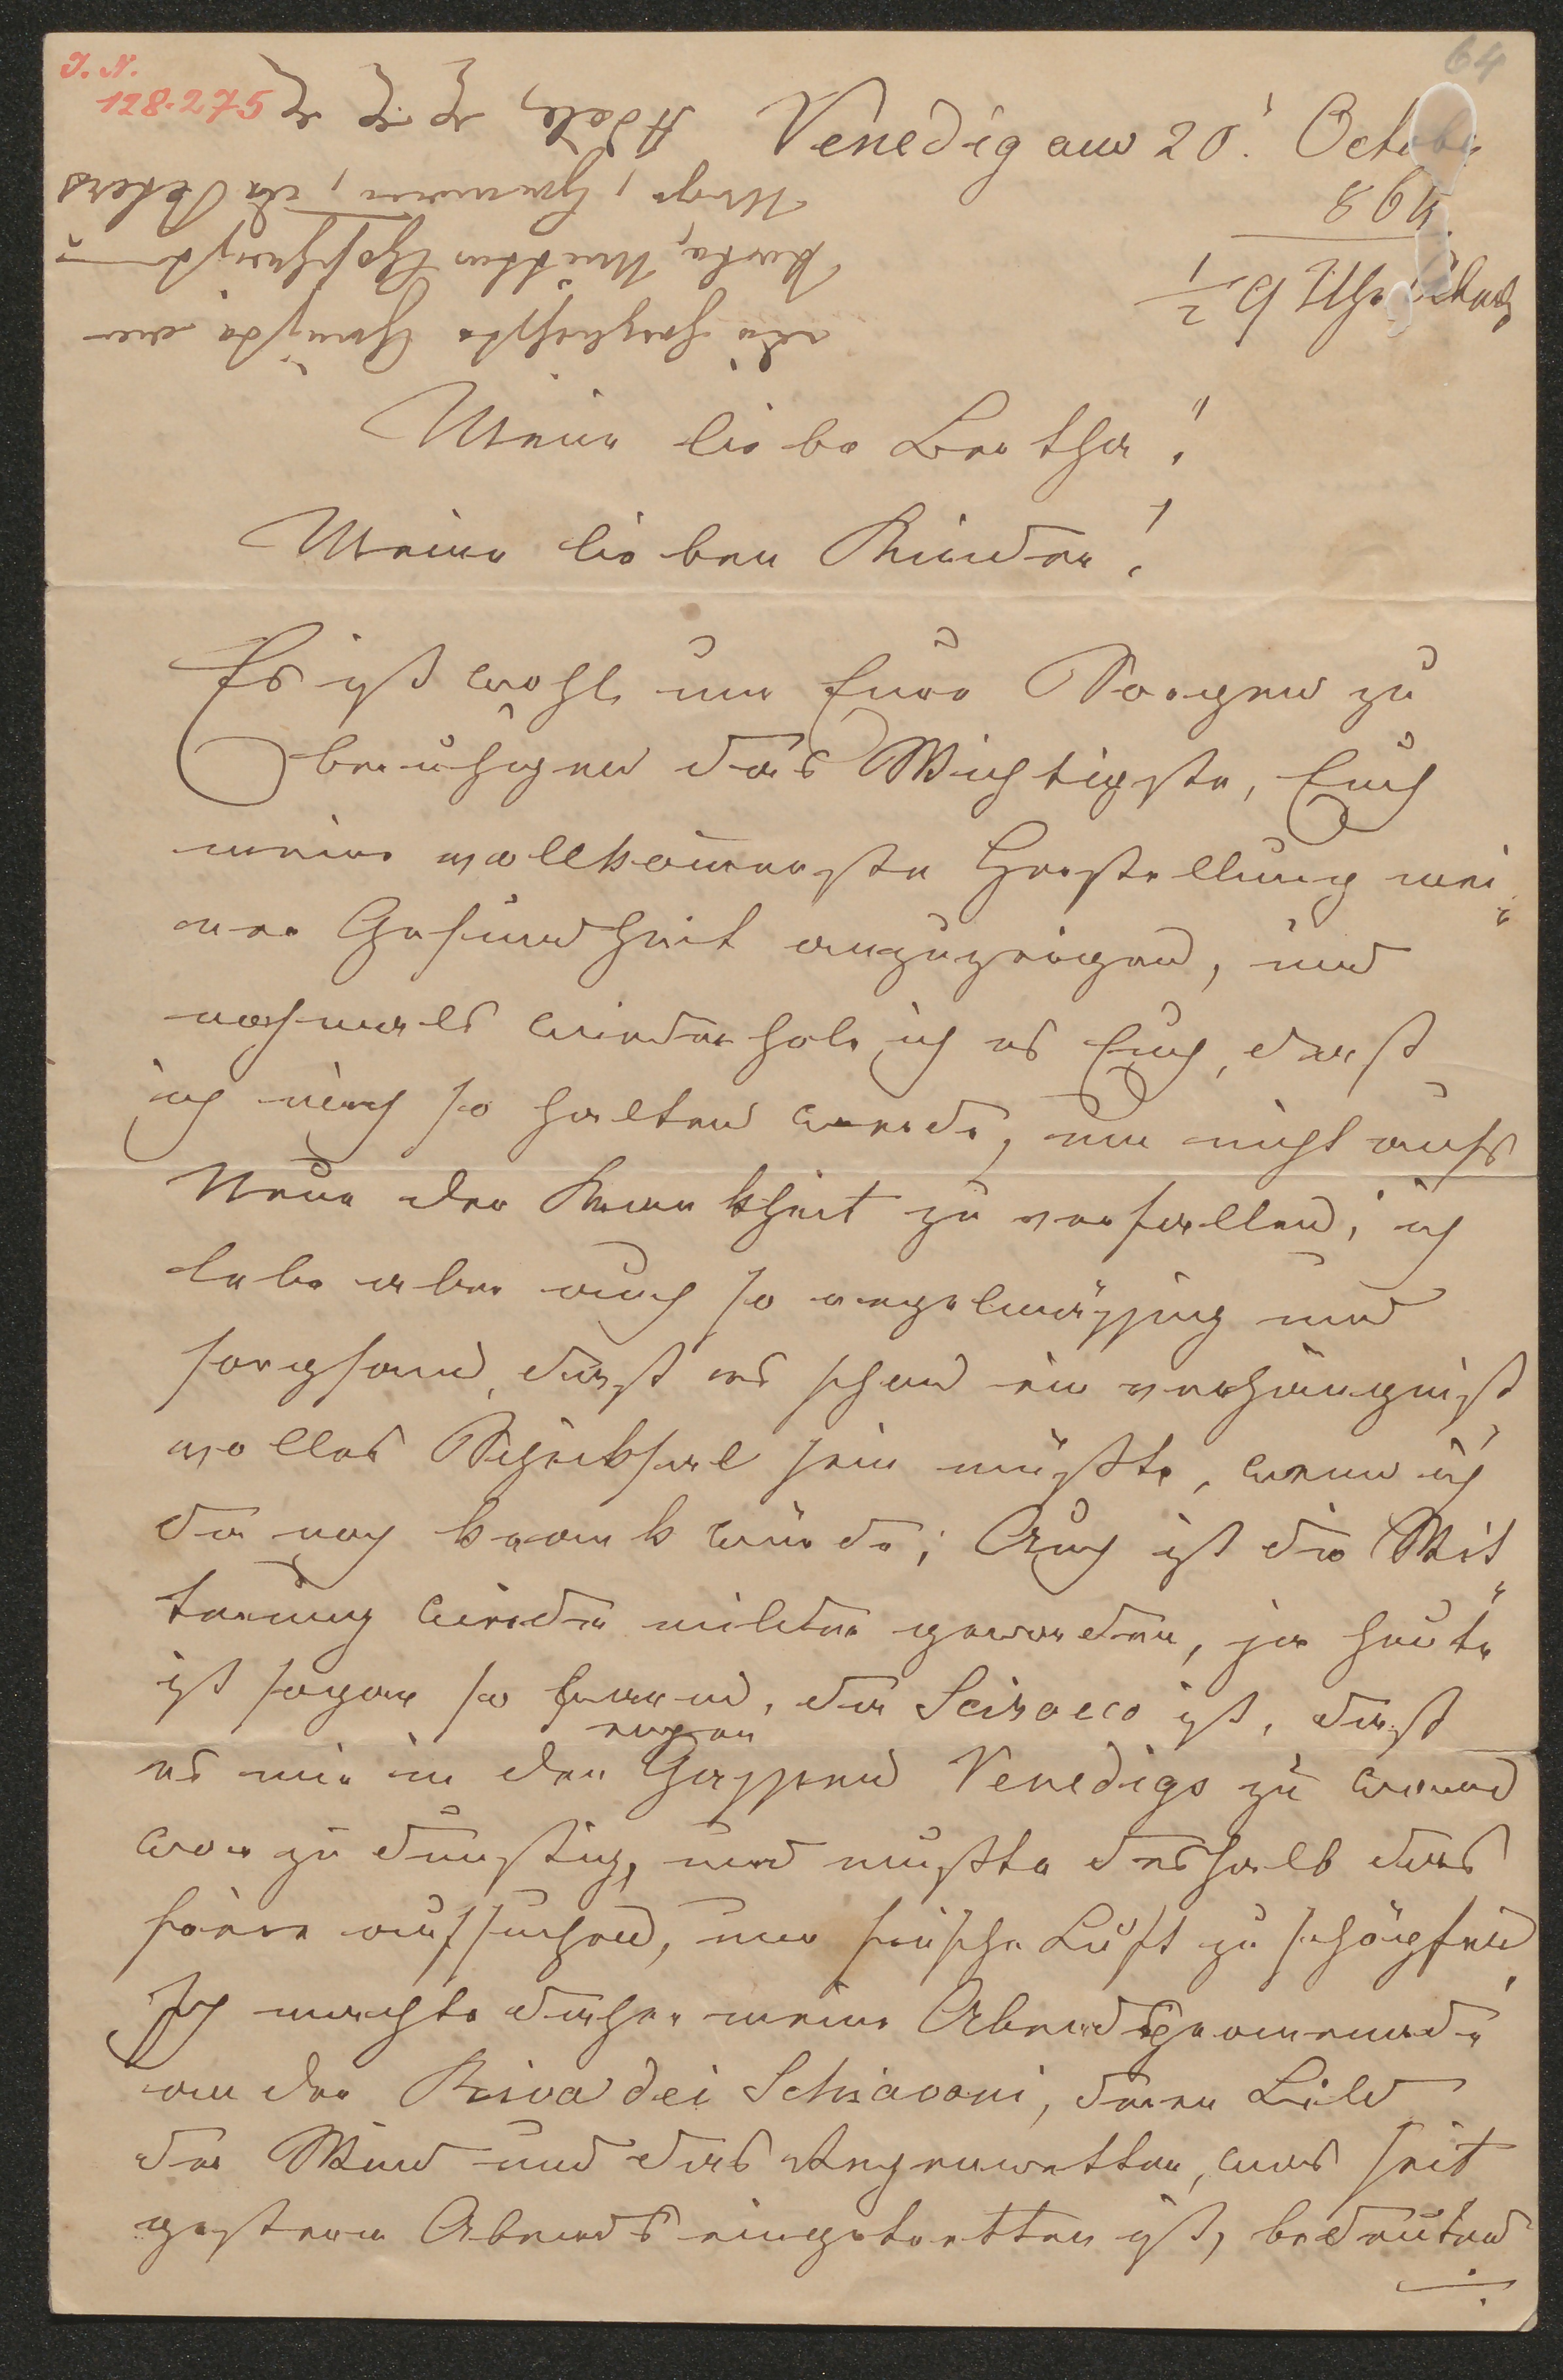 64
J. N.
128.275
Venedig am 20. October
1/2 9 Uhr Abends
die herzlichsten Grüße an
Adele, etc etc etc
Meine liebe Bertha!
Meine lieben Kinder!
Es ist wohl um Eure Sorgen zu
beruhigen das Wichtigste, Euch
meine vollkommenste Herstellung mei-
ner Gesundheit anzuzeigen, und
nochmals wiederhole ich es Euch, dasß
ich mich so halten werde, um nicht aufs
Neue der Krankheit zu verfallen; ich
lebe aber auch so regelmässig und
sorgsam, dasß es schon ein verhängniß
volles Schicksal sein müßte, wenn ich
da noch krank würde; Auch ist die Wit-
terung wieder milder geworden, ja heute
ist sogar so warm, da Scirocco ist, dasß
es mir in den engen Gassen Venedigs zu warm
war zu dunstig, und mußte deshalb das
freie aufsuchen, um frische Luft zu schöpfen,
Ich machte daher meine Abendspromenade
an der Riva dei Schiavoni, deren Bild
der Wind und das Regenwetter, was seit
gestern Abends eingetretten ist, bedeutend